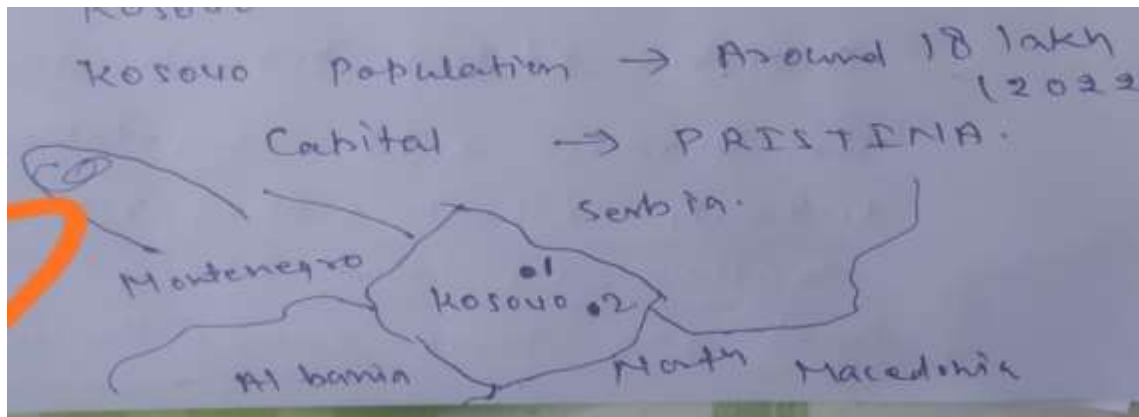 Kosovo
Kosovo Population → Around 18 lakh
(2022
Capital → PRISTINA.
Serbia.
Montenegro
•1
Kosovo •2
Albania North Macedonia